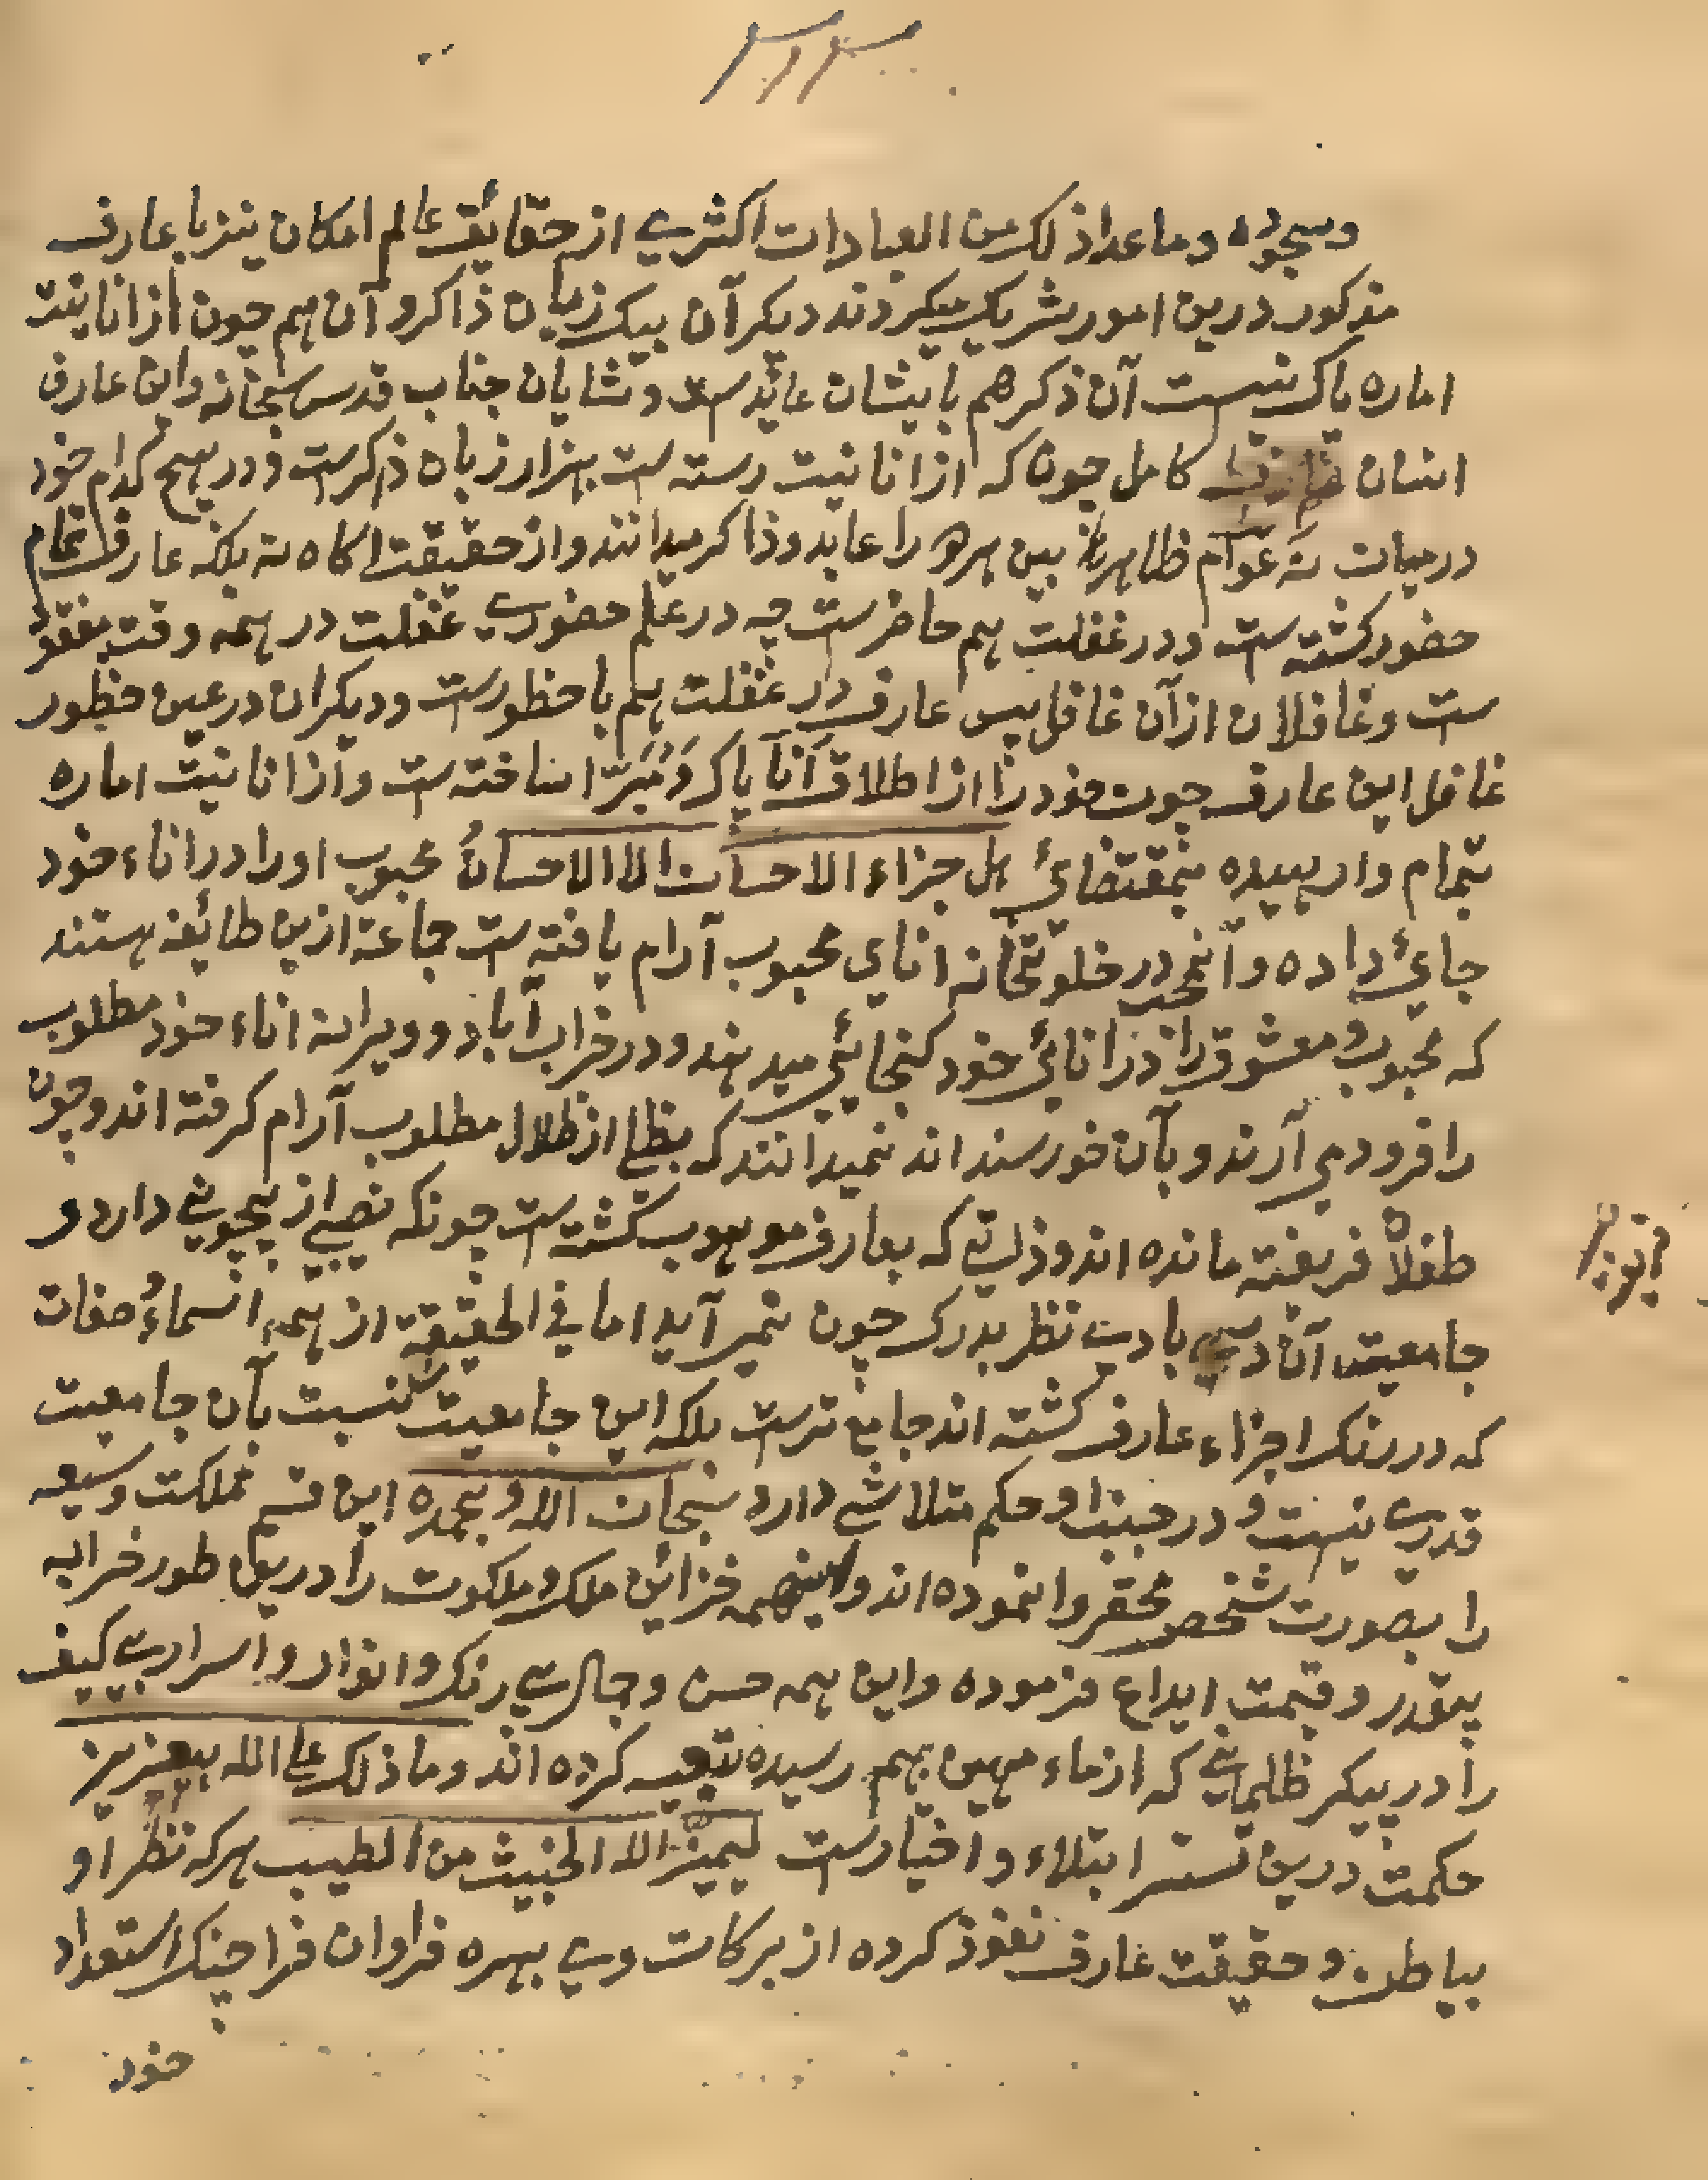 وسجوده وما عدا ذلک من العبادات اکثرے از حقائق عالم امکان نیز با عارف
مذکور درین امور شریک میکردند دیکر آن بیک زبان ذاکر و آن هم چون از انانیت
اماره پاک نیست آن ذکر هم بایشان عائد ست و شایان جناب قدس سبحانه و این عارف
انسان کامل چون که از انانیت رسته ست بهزار زبان ذاکرست و در هیچ کدام خود
درمیان نه عوام ظاهر بین هر دو را عابد و ذاکر میدانند و از حقیقت اکاه نه بلکه عارف تمام
حضور کشته ست و در غفلت هم حاضرست چه در علم حضورے غفلت در همه وقت مفقود
ست و غافلان از آن غافل پس عارف در غفلت هم با حظورست و دیکران در عین حظور
غافل این عارف چون خود را از اطلاق انا پاک و مبرّا ساخته ست و از انانیت اماره
بتمام وا رهیده بمقتضائ هل جزاء الاحسان الا الاحسان محبوب او را در اناء خود
جائ داده و در خلوتخانه انای محبوب آرام یافته ست جماعة ازین طائفه هستند
که محبوب و معشوق را در انائ خود کنجائی میدهند و در خراب آباد و ویرانه اناء خود مطلوب
را فرود می آرند و بآن خورسند اند نمیدانند که بظلے از ظلال مطلوب آرام کرفته اند و چون
طفلان فریفته مانده اند و ذاتے که بعارف موهوب کشته ست چونکه نصیبے از بیچونی دارد و
جامعیت آن بادی نظر بدرک چون نمیر آید اما فی الحقیقة از همه اسماء و صفات
که در رنک اجزاء عارف کشته اند جامع ترست بلکه این جامعیت نسبت بآن جامعیت
قدرے نیست و در جنب او حکم متلاشے دارد سبحان الله و بحمده این قسم مملکت وسیعه
را بصورت شخص محقر وا نموده اند و اینهمه خزائن ملک و ملکوت را درین طور خرابه
بیقدر و قیمت ایداع فرموده و این همه حسن و جمال بے رنک و انوار و اسرار بے کیف
را در پیکر ظلمانے که از ماء مهین بهم رسیده تعبیه کرده اند و ما ذلک علی الله بعزیز
حکمت درین تستر ابتلاء و اختبارست لیمیز الله الخبیث من الطیب هر که نظر او
بباطن و حقیقت عارف نفوذ کرده از برکات وے بهره فراوان فراچنک استعداد
خود